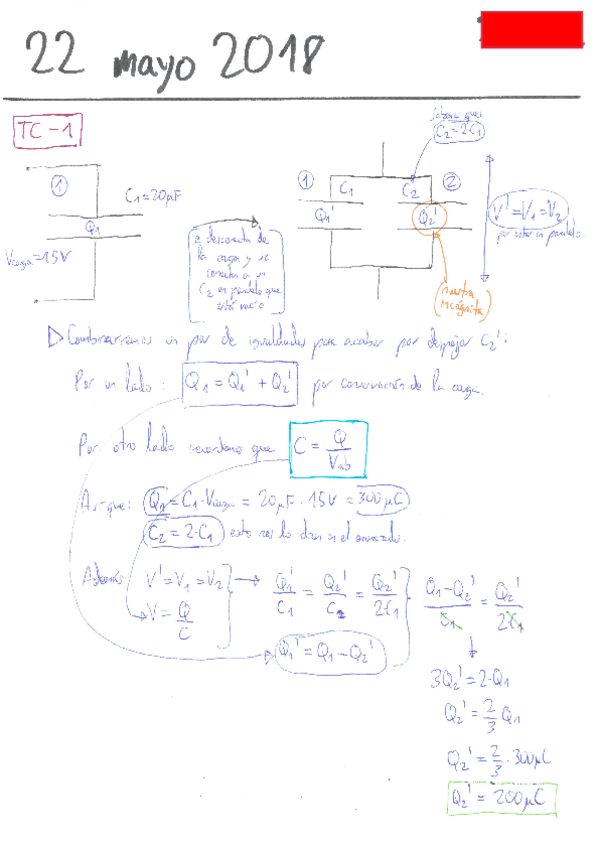 22 mayo 2018
TC-1
①
C₁=20μF
Q₁
V carga=15V
se desconecta de
la carga y se
conecta a un
C₂ en paralelo que
está vacío
Sabemos que
C₂=2C₁
① C₁ C₂ ②
Q₁' Q₂'
V'=V₁=V₂
por estar en paralelo
(nuestra
incógnita)
▷ Combinaremos un par de igualdades para acabar por despejar C₂':
Por un lado: Q₁ = Q₁' + Q₂' por conservación de la carga.
Por otro lado recordemos que C = Q/Vab
Así que: Q₁ = C₁·Vcarga = 20μF·15V = 300μC
C₂ = 2·C₁ esto nos lo dan en el enunciado.
Además V' = V₁ = V₂ → Q₁'/C₁ = Q₂'/C₂ = Q₂'/2C₁
V = Q/C
Q₁' = Q₁ - Q₂'
Q₁-Q₂'/C₁ = Q₂'/2C₁
3Q₂' = 2·Q₁
Q₂' = 2/3 Q₁
Q₂' = 2/3 · 300μC
Q₂' = 200μC